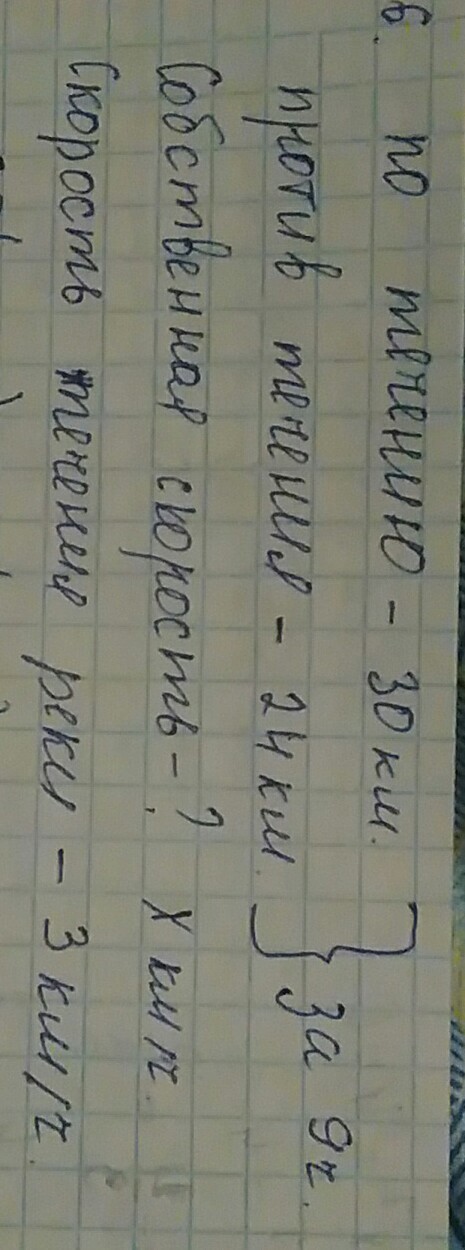 6. по течению - 30 км.
против течения - 24 км. } за 9ч.
Собственная скорость - ? х км/ч.
Скорость течения реки - 3 км/ч.